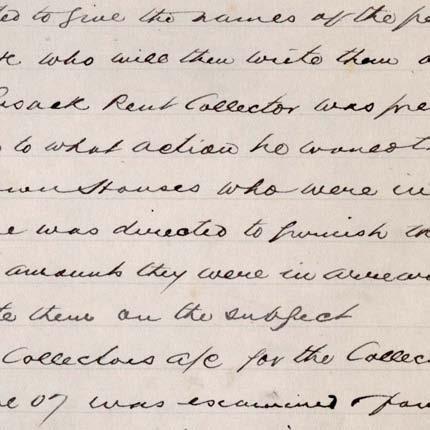 ted to give the names of the pe
k who will then write them a
Cusack Rent Collector was pre
to what action he wanted t
own Houses who were in
e was directed to furnish th
amounts they were in arrear
te them on the subject
Collectors a/c for the Collec
e 07 was examined